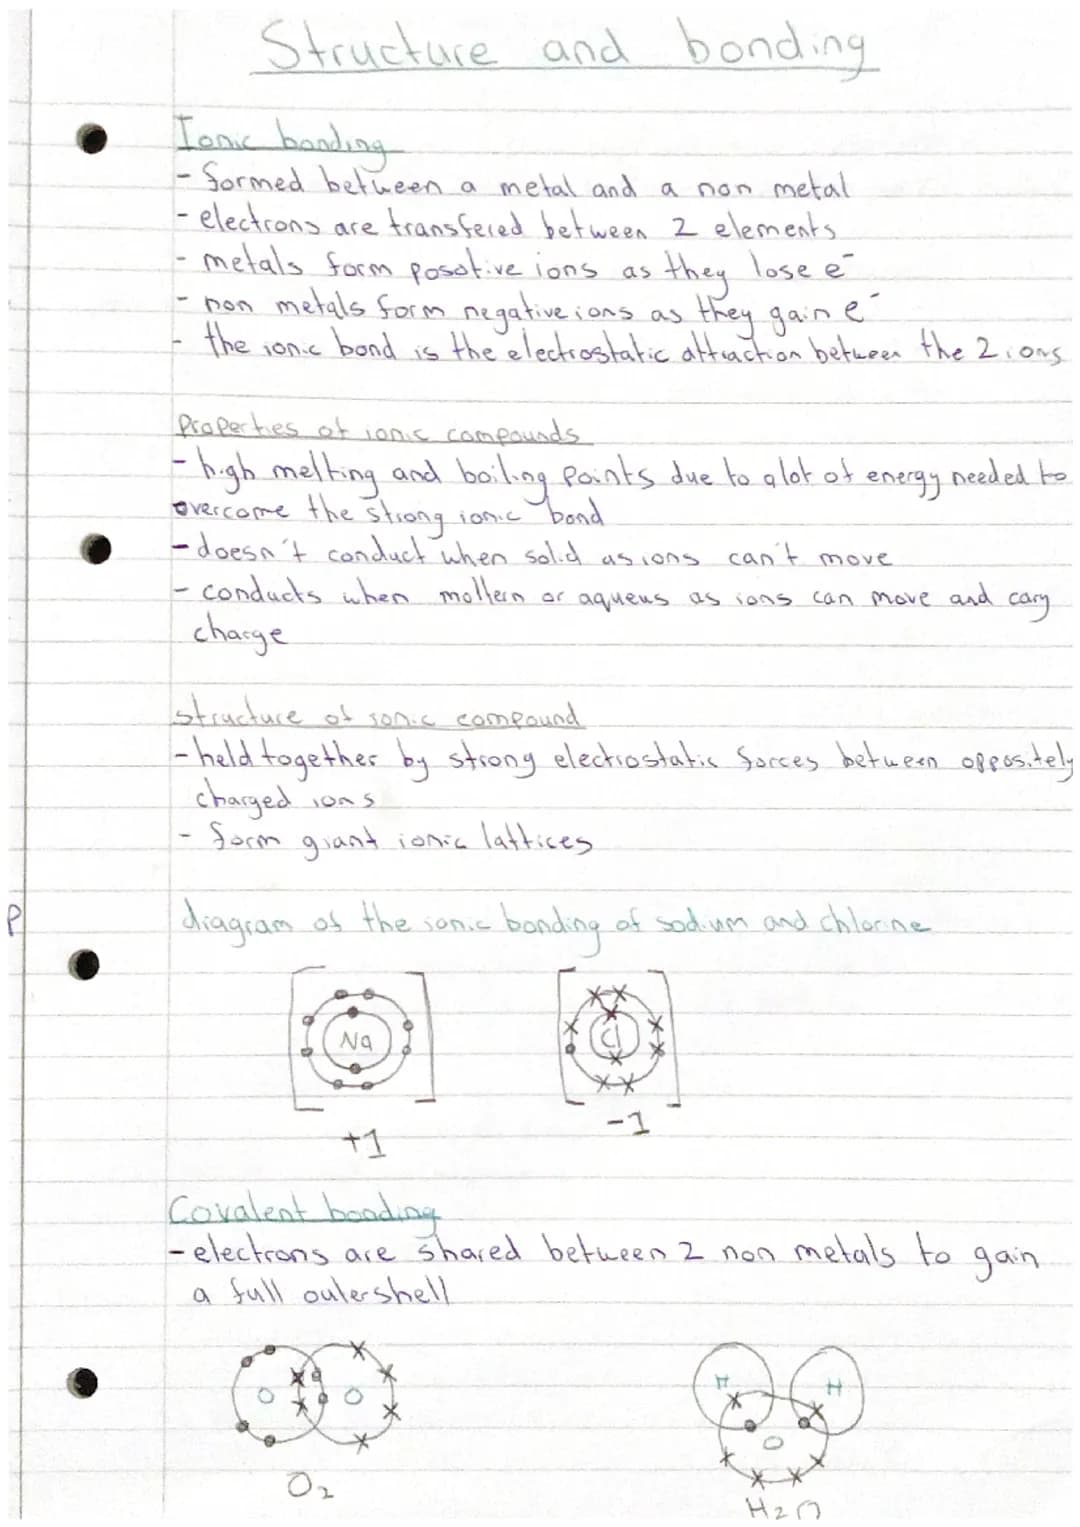 Structure and bonding
Ionic bonding
- formed between a metal and a non metal
- electrons are transfered between 2 elements
- metals form posotive ions as they lose e⁻
- non metals form negative ions as they gain e⁻
- the ionic bond is the electrostatic attraction between the 2 ions
Properties of ionic compounds
- high melting and boiling points due to alot of energy needed to
overcome the strong ionic bond
- doesn't conduct when solid as ions can't move
- conducts when moltern or aqueus as ions can move and cary
charge
structure of ionic compound
- held together by strong electrostatic forces between oppositely
charged ions
- form giant ionic lattices
P
diagram of the ionic bonding of sodium and chlorine
Na Cl
+1 -1
Covalent bonding
- electrons are shared between 2 non metals to gain
a full outershell
O O H H
O
O₂ H₂O